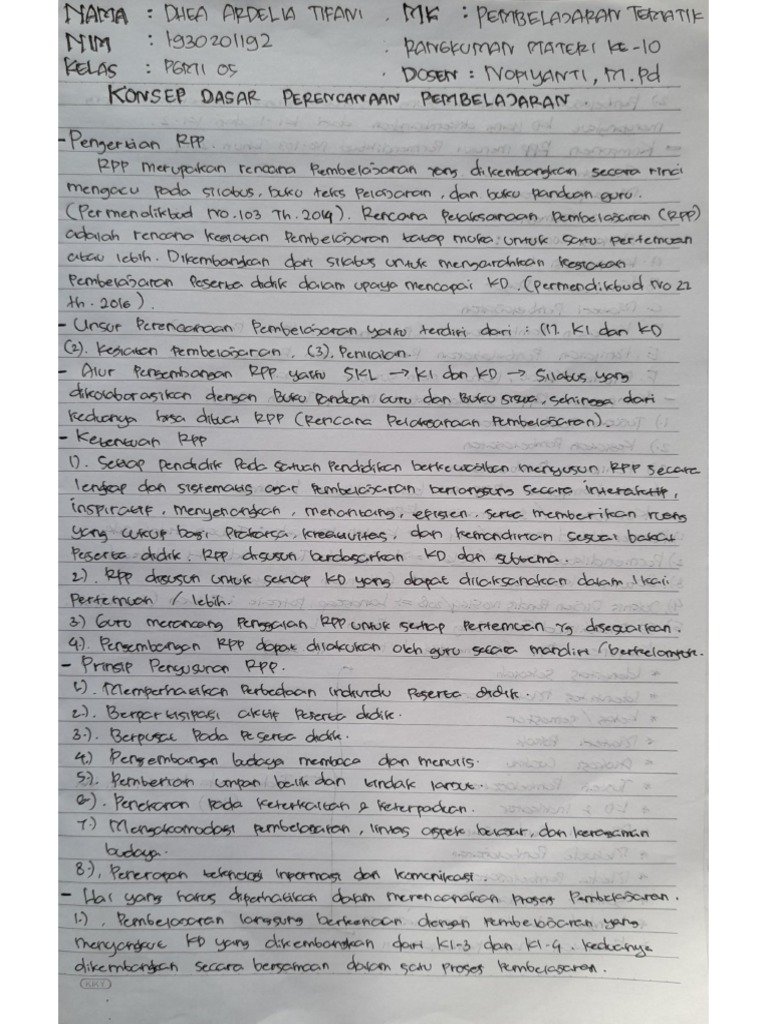 NAMA : DHEA ARDELIA TIFANI . MK : PEMBELAJARAN TEMATIK
NIM : 1930201192 RANGKUMAN MATERI KE-10
KELAS : PGMI 05 . DOSEN : NOPIYANTI, M.Pd
KONSEP DASAR PERENCANAAN PEMBELAJARAN.
- Pengertian RPP.
RPP merupakan rencana Pembelajaran yang dikembangkan secara rinci
mengacu pada silabus, buku teks pelajaran, dan buku panduan guru.
(Permendikbud No.103 Th.2014). Rencana Pelaksanaan Pembelajaran (RPP)
adalah rencana kegiatan Pembelajaran tatap muka untuk satu pertemuan
atau lebih. Dikembangkan dari silabus untuk mengarahkan kegiatan
Pembelajaran Peserta didik dalam upaya mencapai KD. (Permendikbud No 22
th. 2016).
- Unsur Perencanaan Pembelajaran yaitu terdiri dari : (1). KI dan KD
(2). Kegiatan Pembelajaran, (3). Penilaian.
- Alur Pengembangan RPP yaitu SKL → KI dan KD → Silabus yang
dikolaborasikan dengan Buku Panduan Guru dan Buku siswa, sehingga dari
keduanya bisa dibuat RPP (Rencana Pelaksanaan Pembelajaran).
- Ketentuan RPP
1). Setiap Pendidik Pada satuan Pendidikan berkewajiban menyusun RPP secara
lengkap dan sistematis agar Pembelajaran berlangsung secara interaktif,
inspiratif, menyenangkan, menantang, efisien, serta memberikan ruang
yang cukup bagi Prakarsa, kreativitas, dan kemandirian sesuai bakat
Peserta didik. RPP disusun berdasarkan KD dan subtema.
2.). RPP disusun untuk setiap KD yang dapat dilaksanakan dalam 1 kali
Pertemuan / lebih.
3) Guru merancang Penggalan RPP untuk setiap Pertemuan yg disesuaikan.
4). Pengembangan RPP dapat dilakukan oleh guru secara mandiri / berkelompok.
- Prinsip Penyusunan RPP.
1.). Memperhatikan Perbedaan individu Peserta didik.
2.). Berpartisipasi aktif Peserta didik.
3.). Berpusat Pada Peserta didik.
4.) Pengembangan budaya membaca dan menulis.
5.). Pemberian umpan balik dan tindak lanjut.
6). Penekanan pada keterkaitan & keterpaduan.
7.) Mengakomodasi pembelajaran, lintas aspek belajar, dan keragaman
budaya.
8.), Penerapan teknologi informasi dan komunikasi.
- Hal yang harus diperhatikan dalam merencanakan proses Pembelajaran.
1.). Pembelajaran langsung berkenaan dengan Pembelajaran yang
menyangkut KD yang dikembangkan dari KI-3 dan KI-4. keduanya
dikembangkan secara bersamaan dalam satu proses Pembelajaran.